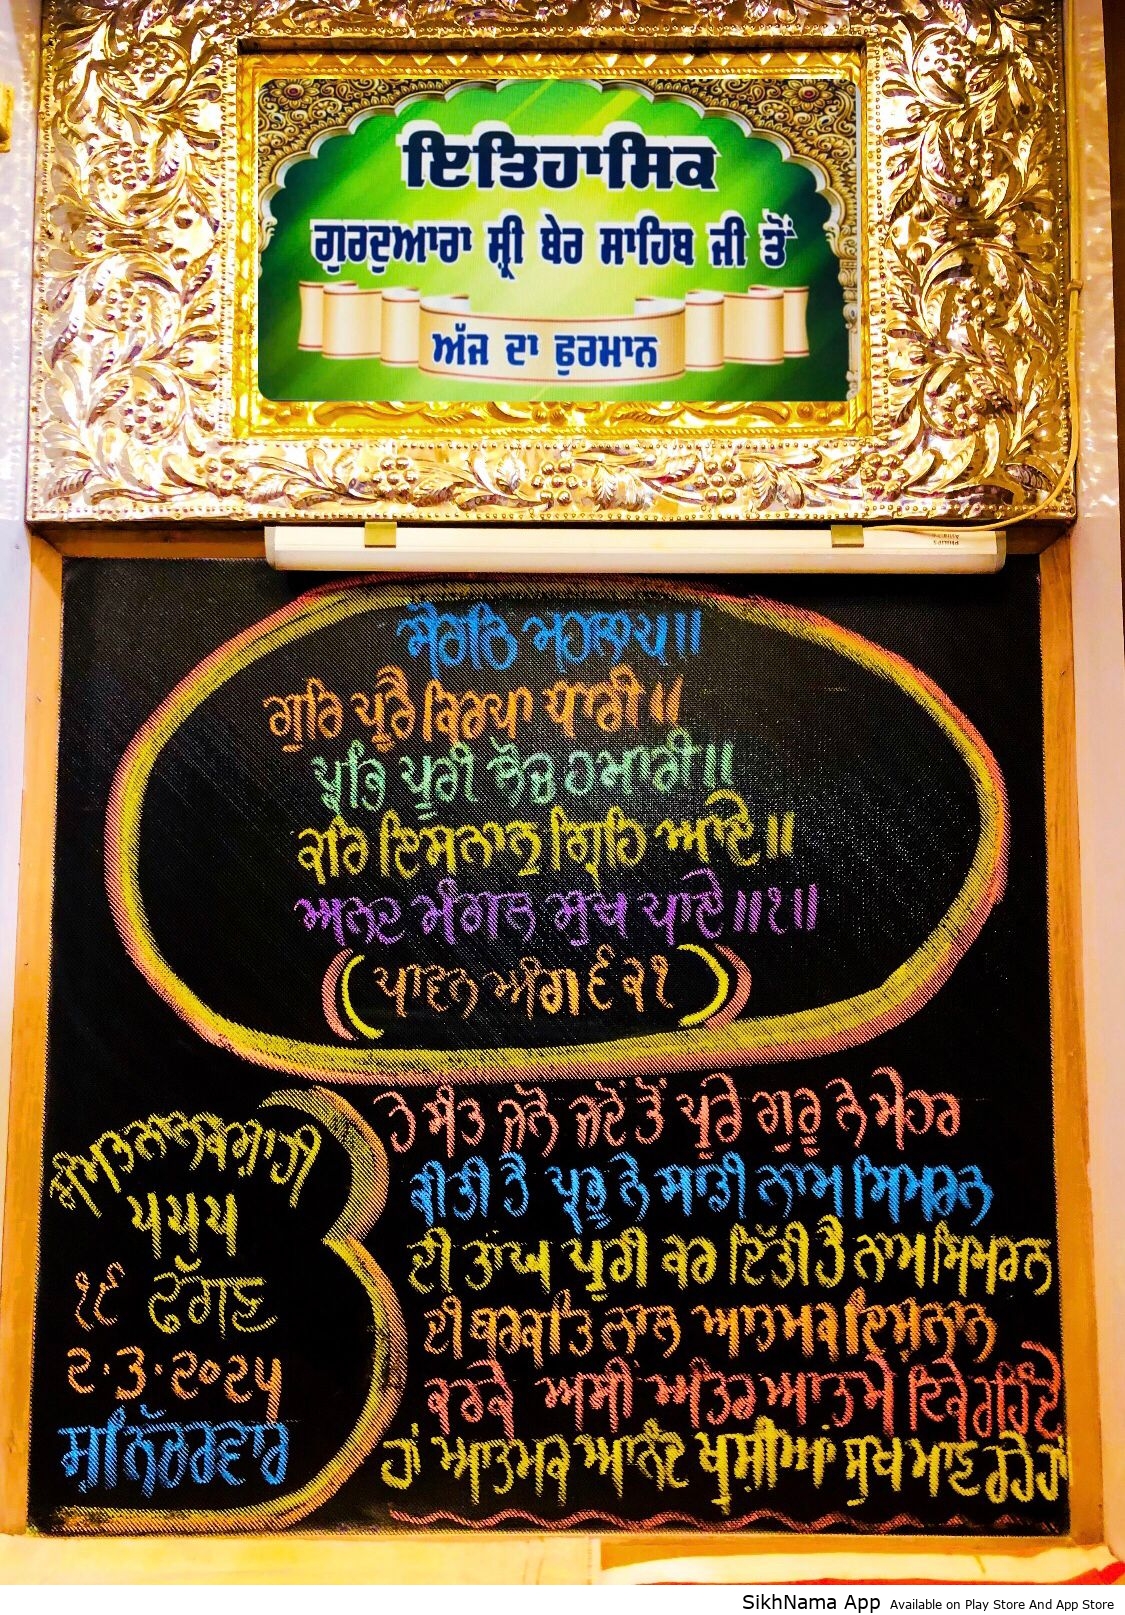 ਇਤਿਹਾਸਿਕ
ਗੁਰਦੁਆਰਾ ਸ੍ਰੀ ਬੇਰ ਸਾਹਿਬ ਜੀ ਤੋਂ
ਅੱਜ ਦਾ ਫੁਰਮਾਨ
ਸੋਰਠਿ ਮਹਲਾ ੫॥
ਗੁਰਿ ਪੂਰੈ ਕਿਰਪਾ ਧਾਰੀ॥
ਪ੍ਰਭਿ ਪੂਰੀ ਲੋਚ ਹਮਾਰੀ॥
ਕਰਿ ਇਸਨਾਨੁ ਗ੍ਰਿਹਿ ਆਏ॥
ਅਨਦ ਮੰਗਲ ਸੁਖ ਪਾਏ॥੧॥
(ਪਾਵਨ ਅੰਗ ੬੨੧)
ਸੰਮਤ ਨਾਨਕਸ਼ਾਹੀ
੫੫੫
੧੯ ਫੱਗਣ
੨.੩.੨੦੨੫
ਸ਼ਨਿੱਚਰਵਾਰ
ਹੇ ਸੰਤ ਜਨੋ ਜਦੋਂ ਤੋਂ ਪੂਰੇ ਗੁਰੂ ਨੇ ਮੇਹਰ
ਕੀਤੀ ਹੈ ਪ੍ਰਭੂ ਨੇ ਸਾਡੀ ਨਾਮ ਸਿਮਰਨ
ਦੀ ਤਾਂਘ ਪੂਰੀ ਕਰ ਦਿੱਤੀ ਹੈ ਨਾਮ ਸਿਮਰਨ
ਦੀ ਬਰਕਤਿ ਨਾਲ ਆਤਮਕ ਇਸ਼ਨਾਨ
ਕਰਕੇ ਅਸੀਂ ਅੰਤਰ ਆਤਮੇ ਟਿਕੇ ਰਹਿੰਦੇ
ਹਾਂ ਆਤਮਕ ਆਨੰਦ ਖੁਸ਼ੀਆਂ ਸੁਖ ਮਾਣ ਰਹੇ ਹਾਂ
SikhNama App Available on Play Store And App Store